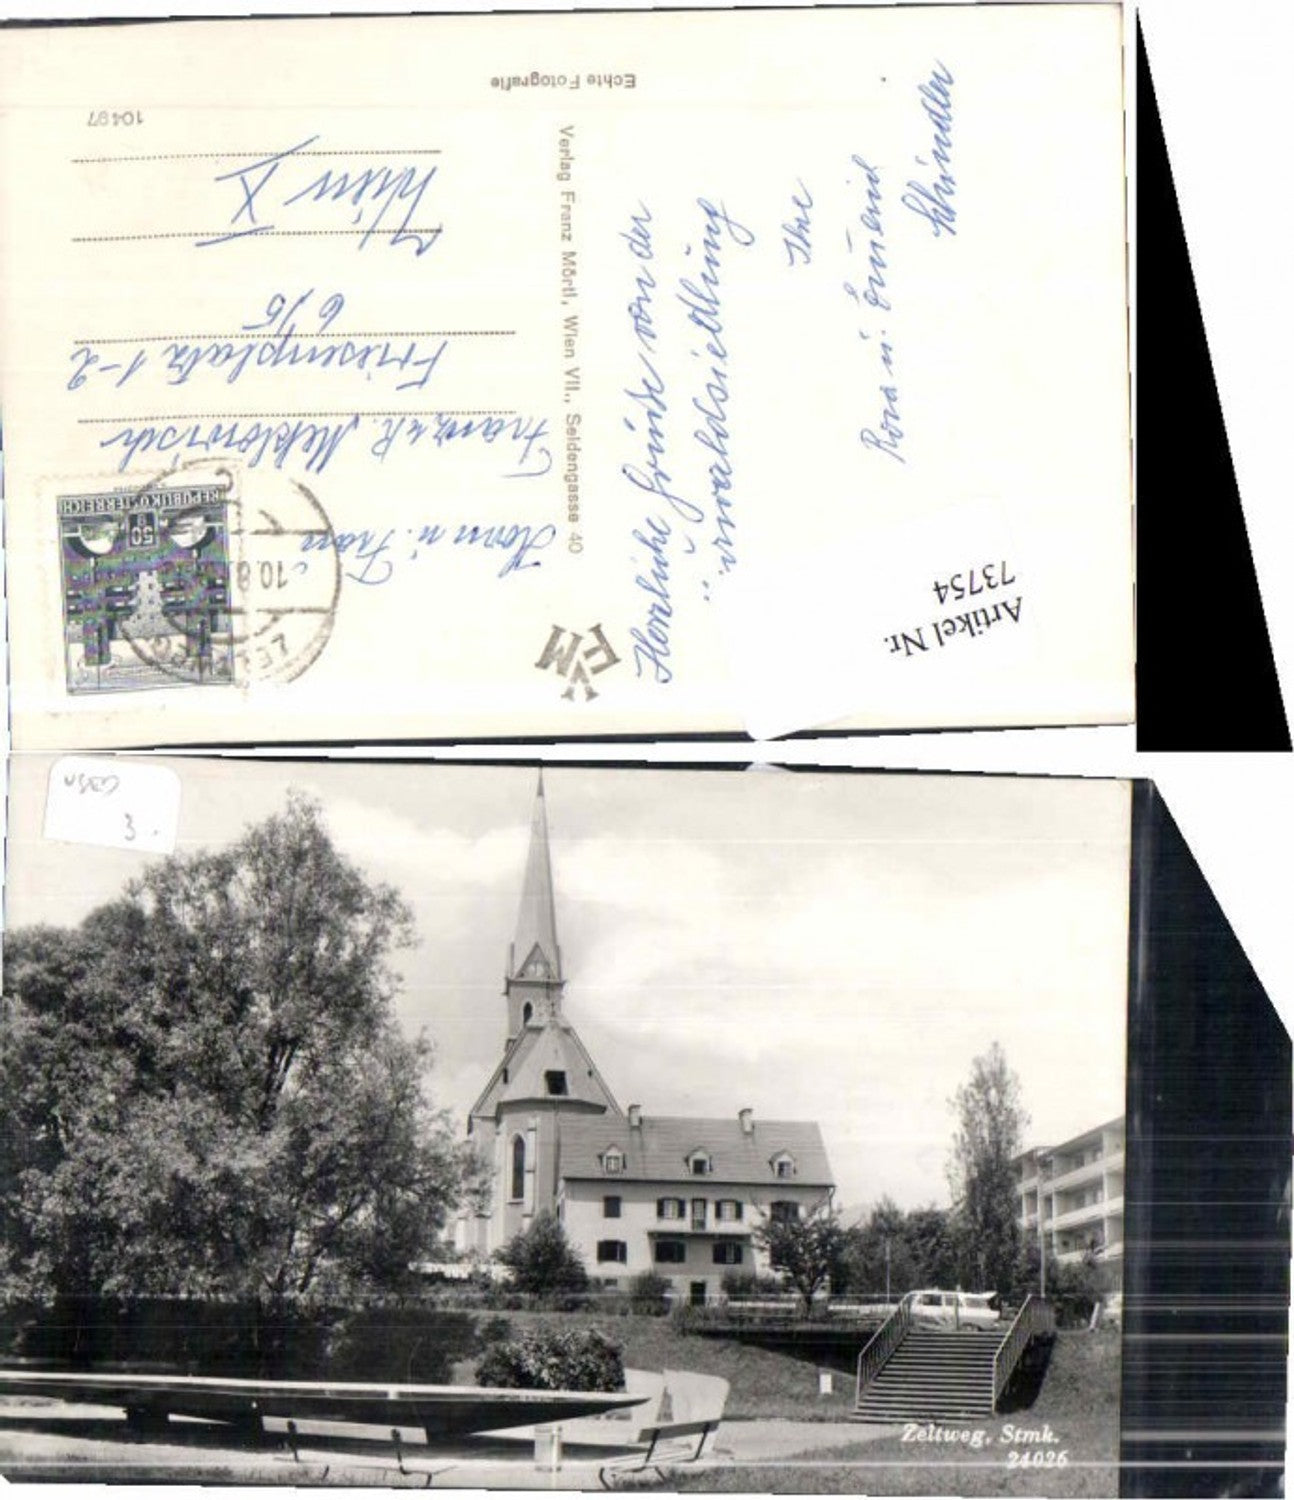 Echte Fotografie
10497
Verlag Franz Mörtl, Wien VII., Seidengasse 40
VFM
Herrn u. Frau
Franz u. R.
Friesenplatz 1-2
6/5
Wien X
REPUBLIK ÖSTERREICH
50
10.8.
ZELTWEG
Herzliche Grüße von der
Urwaldsiedlung
Ihre
Rosa u.
Schindler
Artikel Nr.
73754
3
Zeltweg, Stmk.
24026